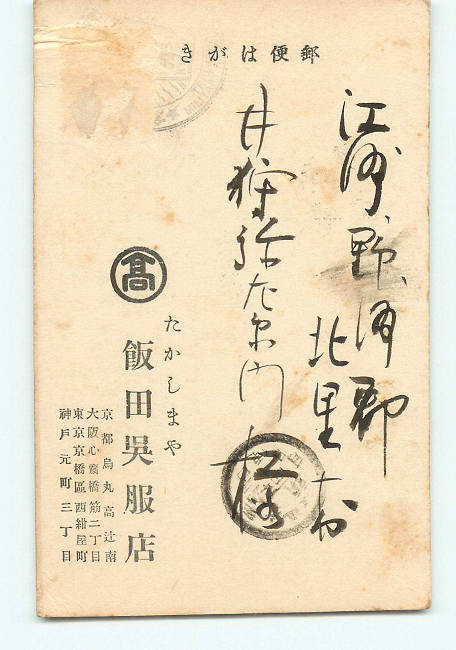 郵便はがき
江州野洲郡
北里村
井狩弥左衛門様
髙
たかしまや
飯田吳服店
京都烏丸高辻南
大阪心齋橋筋二丁目
東京京橋區西紺屋町
神戸元町三丁目